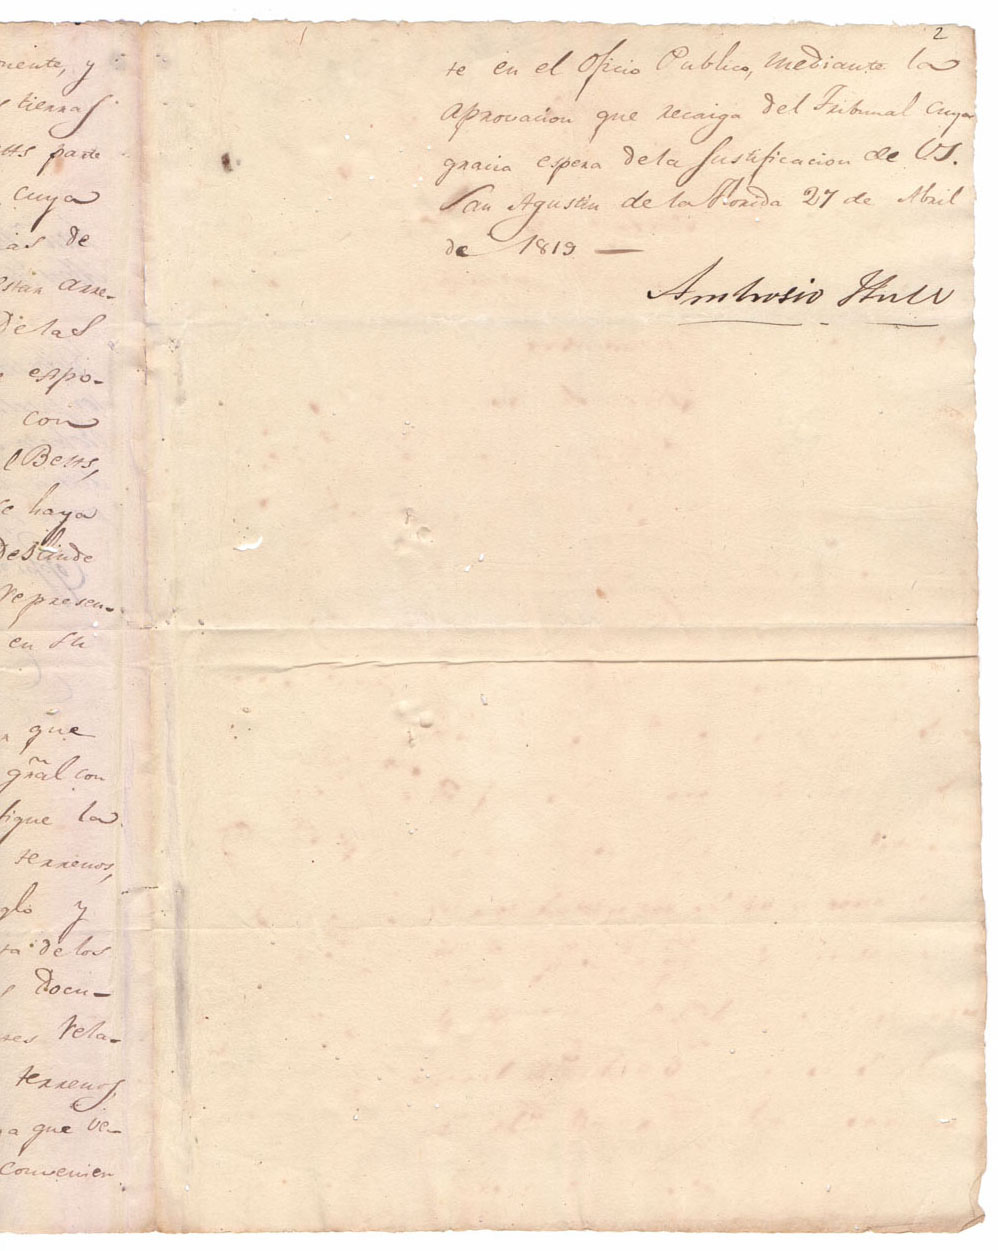 nente, y
tierras
tts parte
cuya
as de
estan arre-
De las
espo-
con
Betts,
se haya
Deslinde
represen-
en su
que
gñal con
fique la
terrenos,
glo y
ta de los
s Docu-
res rela-
terrenos,
a que ve-
convenien
2
te en el Oficio Publico, mediante la
aprovacion que recaiga del Tribunal cuya
gracia espera de la Justificacion de VS.
San Agustin de la Florida 27 de Abril
de 1819 —
Ambrosio Hull